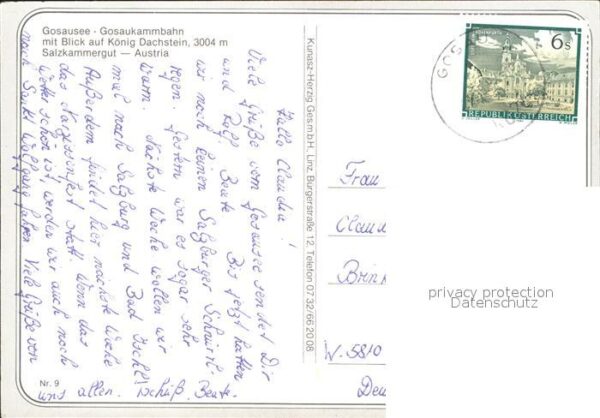 Gosausee · Gosaukammbahn
mit Blick auf König Dachstein, 3004 m
Salzkammergut — Austria
Hallo Claudia!
Viele Grüße vom Gosausee sendet Dir
und Rolf. Beate. Bis jetzt hatten
wir noch keinen Salzburger Schnürl-
regen. Gestern war es sogar sehr
warm. Nächste Woche wollen wir
mal nach Salzburg und Bad Ischl!
Außerdem findet hier nächste Woche
das Narzissenfest statt. Wenn das
Wetter schön ist, werden wir auch noch
nach Sankt Wolfgang fahren. Viele Grüße von
uns allen. Tschüß. Beate.
Nr. 9
Kunasz-Herzig Ges.m.b.H., Linz, Bürgerstraße 12, Telefon 07 32/66 20 08
GOS
6 S
REPUBLIK ÖSTERREICH
Frau
Claud
Brink
W-5810
Deu
privacy protection
Datenschutz